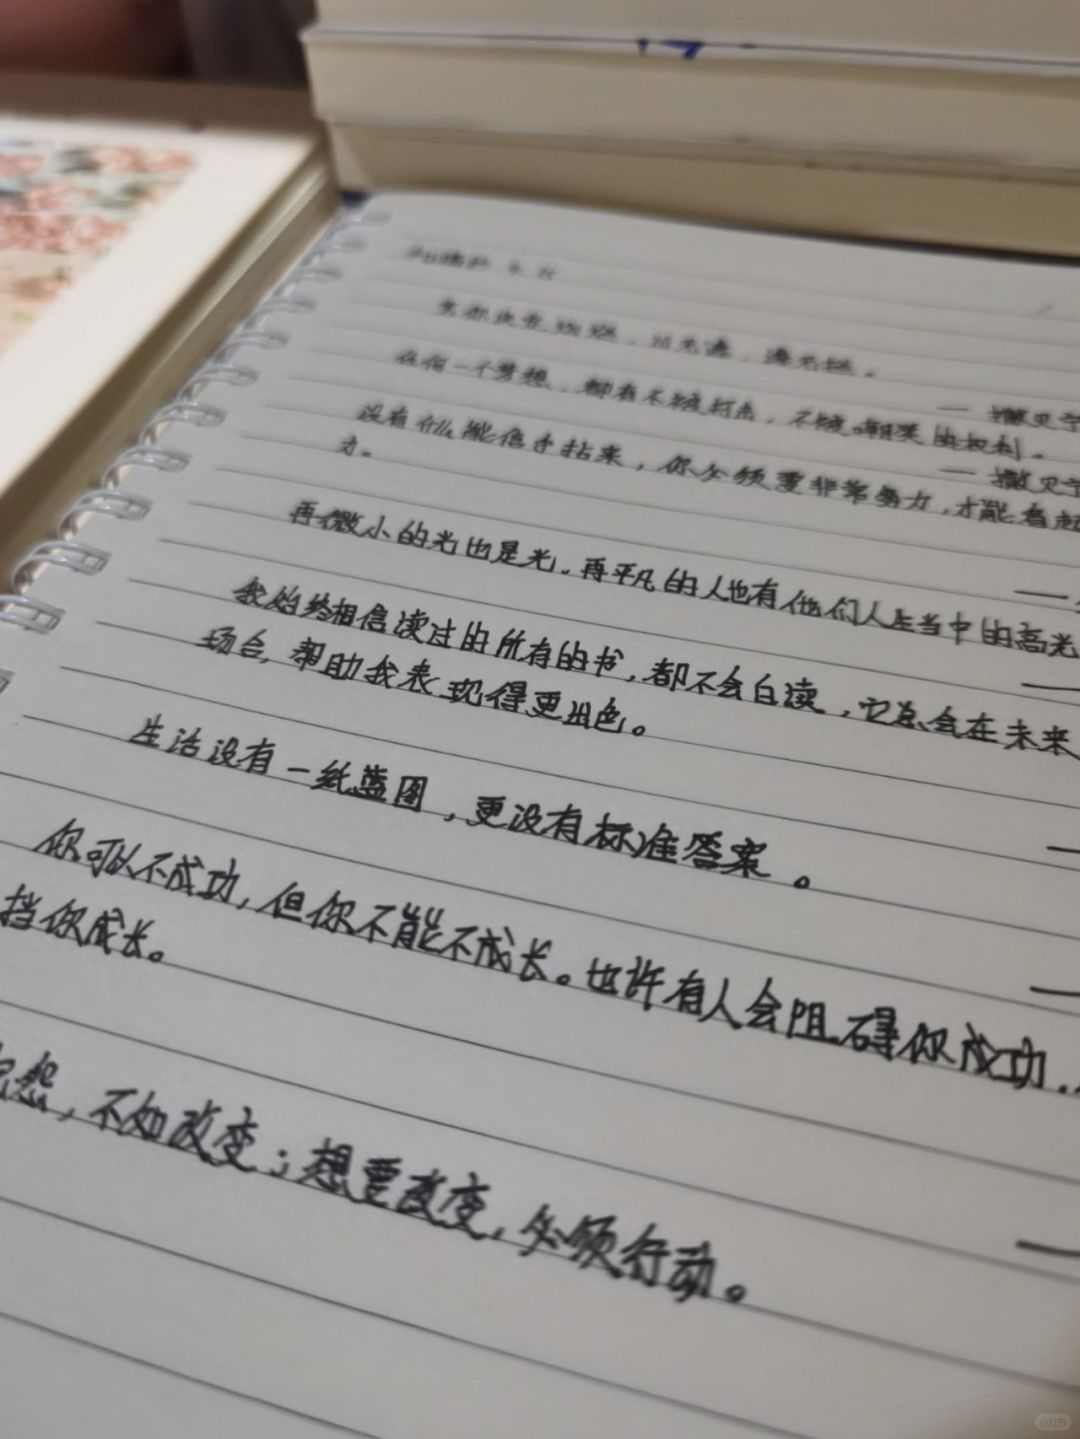 在何一个梦想，都有不被打击，不被嘲笑的权利。
— 撒贝宁
没有什么能信手拈来，你必须要非常努力，才能看起
— 撒贝宁
再微小的光也是光，再平凡的人也有他们人生当中的高光
我始终相信读过的所有的书，都不会白读，它总会在未来
场合，帮助我表现得更出色。
生活没有一纸蓝图，更没有标准答案。
你可以不成功，但你不能不成长。也许有人会阻碍你成功..
挡你成长。
怨，不如改变；想要改变，必须行动。
小红书